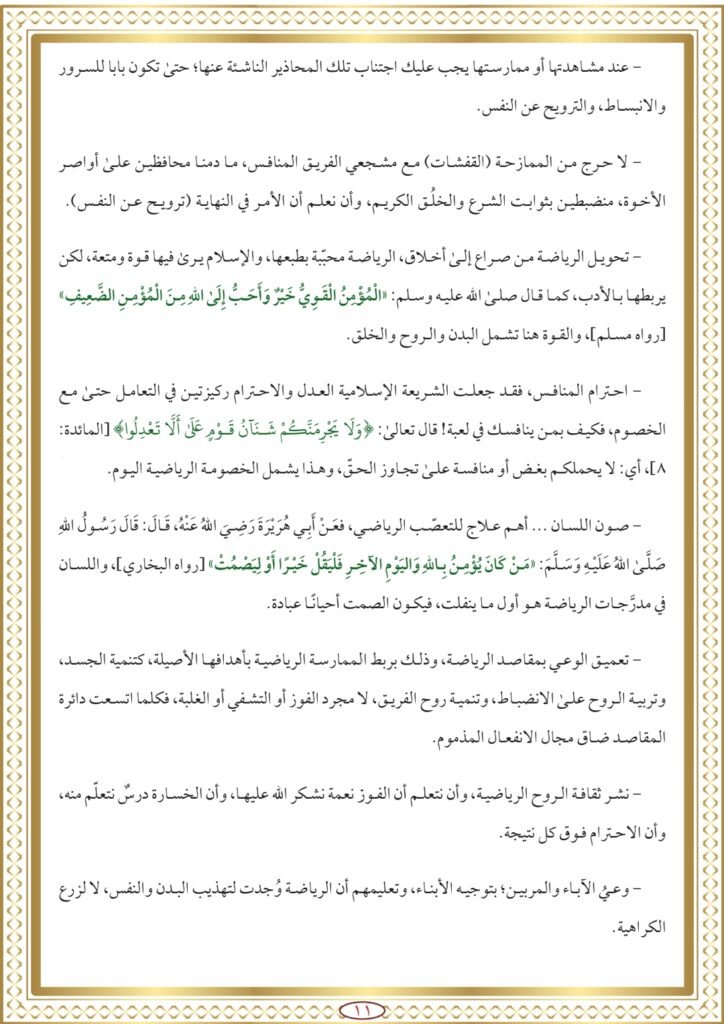 – عند مشاهدتها أو ممارستها يجب عليك اجتناب تلك المحاذير الناشئة عنها؛ حتىٰ تكون بابا للسرور
والانبساط، والترويح عن النفس.
– لا حرج من الممازحة (القفشات) مع مشجعي الفريق المنافس، ما دمنا محافظين علىٰ أواصر
الأخوة، منضبطين بثوابت الشرع والخُلُق الكريم، وأن نعلم أن الأمر في النهاية (ترويح عن النفس).
– تحويل الرياضة من صراع إلىٰ أخلاق، الرياضة محبّبة بطبعها، والإسلام يرىٰ فيها قوة ومتعة، لكن
يربطها بالأدب، كما قال صلىٰ الله عليه وسلم: «الْمُؤْمِنُ الْقَوِيُّ خَيْرٌ وَأَحَبُّ إِلَىٰ اللهِ مِنَ الْمُؤْمِنِ الضَّعِيفِ»
[رواه مسلم]، والقوة هنا تشمل البدن والروح والخلق.
– احترام المنافس، فقد جعلت الشريعة الإسلامية العدل والاحترام ركيزتين في التعامل حتىٰ مع
الخصوم، فكيف بمن ينافسك في لعبة! قال تعالىٰ: ﴿وَلَا يَجْرِمَنَّكُمْ شَنَآنُ قَوْمٍ عَلَىٰ أَلَّا تَعْدِلُوا﴾ [المائدة:
٨]، أي: لا يحملكم بغض أو منافسة علىٰ تجاوز الحقّ، وهذا يشمل الخصومة الرياضية اليوم.
– صون اللسان ... أهم علاج للتعصّب الرياضي، فعَنْ أَبِي هُرَيْرَةَ رَضِيَ اللهُ عَنْهُ، قَالَ: قَالَ رَسُولُ اللهِ
صَلَّىٰ اللهُ عَلَيْهِ وَسَلَّمَ: «مَنْ كَانَ يُؤْمِنُ بِاللهِ وَاليَوْمِ الآخِرِ فَلْيَقُلْ خَيْرًا أَوْ لِيَصْمُتْ» [رواه البخاري]، واللسان
في مدرَّجات الرياضة هو أول ما ينفلت، فيكون الصمت أحيانًا عبادة.
– تعميق الوعي بمقاصد الرياضة، وذلك بربط الممارسة الرياضية بأهدافها الأصيلة، كتنمية الجسد،
وتربية الروح علىٰ الانضباط، وتنمية روح الفريق، لا مجرد الفوز أو التشفي أو الغلبة، فكلما اتسعت دائرة
المقاصد ضاق مجال الانفعال المذموم.
– نشر ثقافة الروح الرياضية، وأن نتعلم أن الفوز نعمة نشكر الله عليها، وأن الخسارة درسٌ نتعلّم منه،
وأن الاحترام فوق كل نتيجة.
– وعيُ الآباء والمربين؛ بتوجيه الأبناء، وتعليمهم أن الرياضة وُجدت لتهذيب البدن والنفس، لا لزرع
الكراهية.
١١